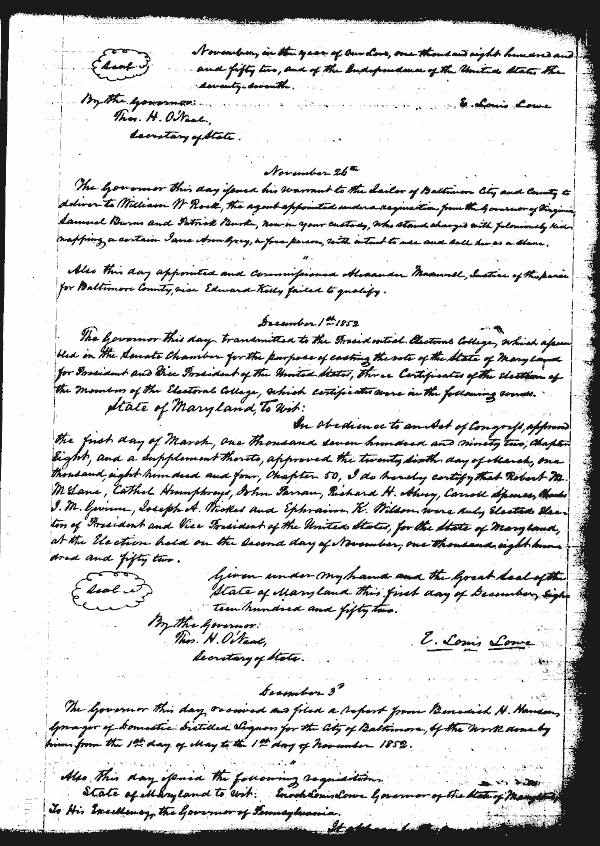 November, in the year of our Lord, one thousand eight hundred and
Seal
and fifty two, and of the Independence of the United States the
seventy-seventh.
By the Governor: E. Louis Lowe
Thos. H. O'Neal,
Secretary of State.
November 26th
The Governor this day issued his Warrant to the Jailor of Baltimore City and County to
deliver to William W Rock, the agent appointed under a requisition from the Governor of Virginia,
Samuel Burns and Patrick Burk, now in your custody, who stand charged with feloniously kid-
napping a certain Jane Ann Grey, a free person, with intent to use and sell her as a slave.
"
Also this day appointed and commissioned Alexander Maxwell, Justice of the peace
for Baltimore County, vice Edward Kelly failed to qualify.
December 1st 1852
The Governor this day transmitted to the Presidential Electoral College, which assem-
bled in the Senate Chamber for the purpose of casting the vote of the State of Maryland
for President and Vice President of the United States, three Certificates of the election of
the Members of the Electoral College, which certificates were in the following words.
State of Maryland, to Wit:
In obedience to an Act of Congress, approved
the first day of March, one thousand seven hundred and ninety two, Chapter
Eight, and a supplement thereto, approved the twenty sixth day of March, one
thousand, eight hundred and four, Chapter 50, I do hereby certify that Robert M.
McLane, Humphreys, John Parran, Richard H. Alvey, Carroll Spence, Charles
J. M. Gwinn, Joseph A. Wickes and Ephraim K. Wilson were duly Elected Elec-
tors of President and Vice President of the United States, for the State of Maryland,
at the Election held on the second day of November, one thousand eight hun-
dred and fifty two.
Given under my hand and the Great Seal of the
Seal
State of Maryland this first day of December, eigh-
teen hundred and fifty two.
By the Governor:
Thos. H. O'Neal, E. Louis Lowe
Secretary of State.
December 3d
The Governor this day received and filed a report from Benedict H.
of Domestic Distilled Liquors for the City of Baltimore, of the work done by
him from the 1st day of May to the 1st day of November 1852.
"
Also, this day issued the following requisition
State of Maryland to Wit: Enoch Louis Lowe Governor of the State of Maryland
To His Excellency, the Governor of Pennsylvania.